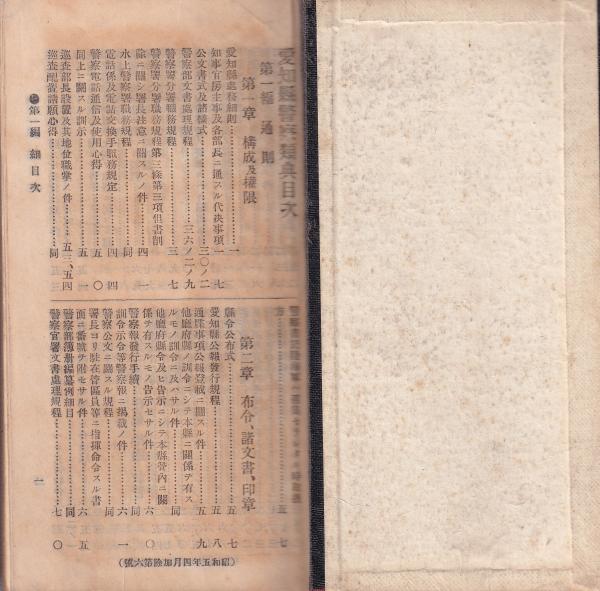 愛知縣警察類典目次
第一編 通則
第一章 構成及權限
愛知縣處務細則……一
知事官房主事及各部長ニ通スル代決事項……一七
公文書式及諸樣式……三〇ノ二
警察部文書處理規程……三六ノ二ノ九
警察署分署職務規程……三七
警察署分署職務規程第三條第三項但書削
除ニ關シ署長注意ニ關スルノ件……四一
水上警察署職務規程……同
電話係及電話交換手職務規定……四四
警察電話通信及使用心得……五〇
同上ニ關スル訓示……五一
巡査部長設置及其地位職掌ノ件……五三、五四
巡査配置請願心得……同
第一編 細目次
第二章 布令、諸文書、印章
縣令公布式……五七
愛知縣公報發行規程……五八
通牒事項公報登載ニ關スル件……五九
他廳府縣ノ訓令ニシテ本縣ニ關係ヲ有ス
ルモノ訓令ニ及ハサル件……同
他廳府縣令及ヒ告示ニシテ本縣管內ニ關
係ヲ有スルモノ告示セサル件……六〇
警察報發行手續……同
訓令示令等警察報ニ揭載ノ件……六一
警察公文ニ關スル規程……同
署長ヨリ駐在管區員等ニ指揮命令スル書
面ニ番號ヲ附セサル件……六五
警察部簿册編纂例細目……同
警察官署文書處理規程……七〇
一
(昭和五年四月加除第六號)